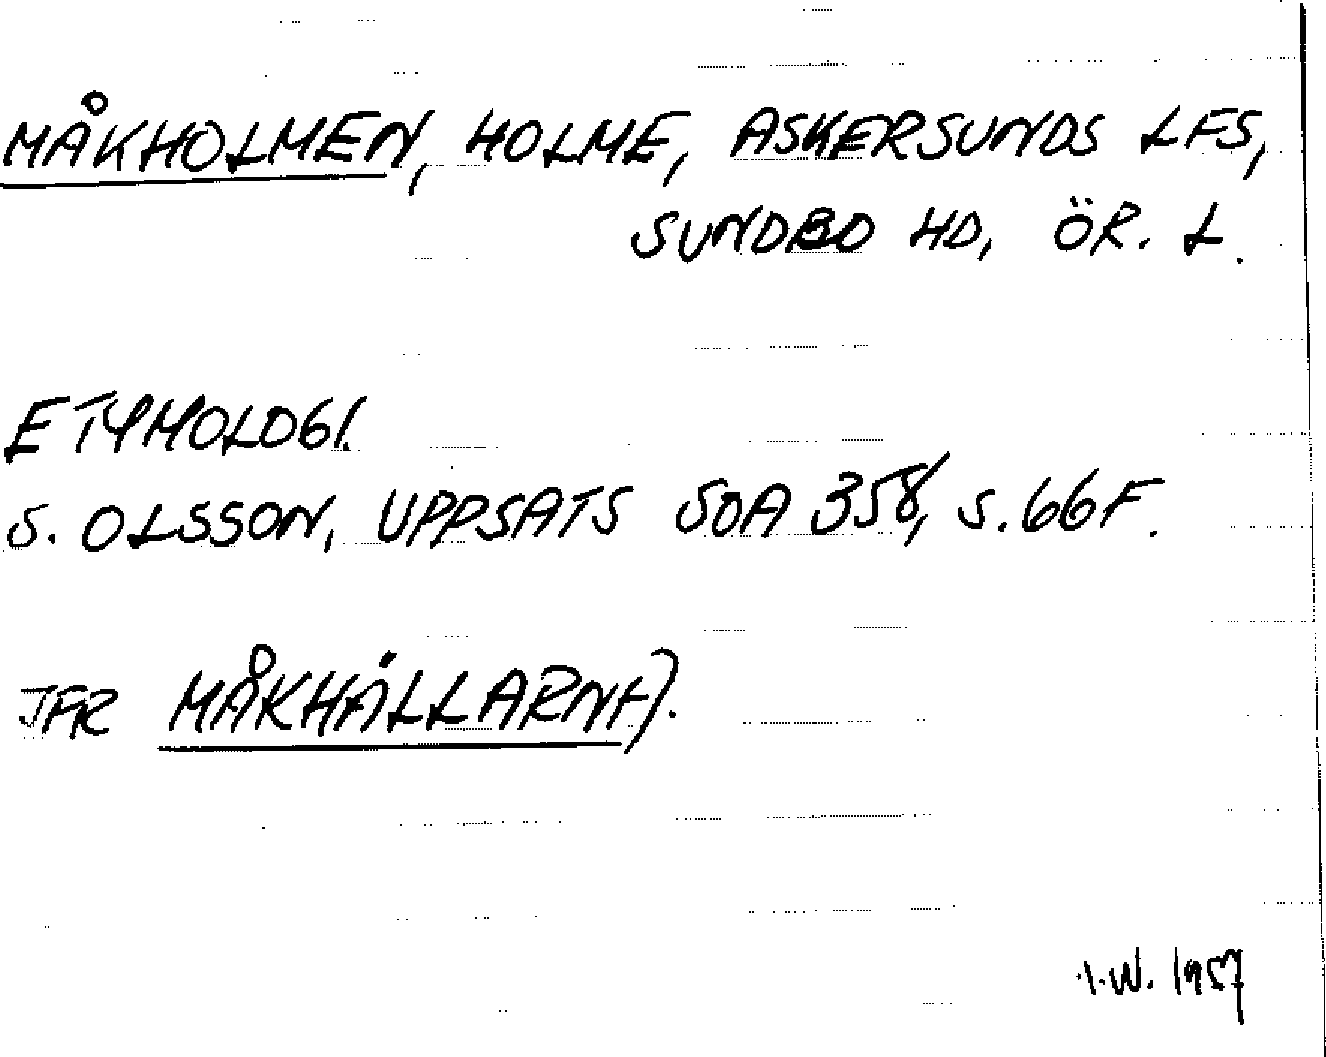 MÅKHOLMEN, HOLME, ASKERSUNDS LFS,
SUNDBO HD, ÖR. L.
ETYMOLOGI.
S. OLSSON, UPPSATS SOA 358, S. 66F.
JFR MÅKHÄLLARNA).
I.W. 1957